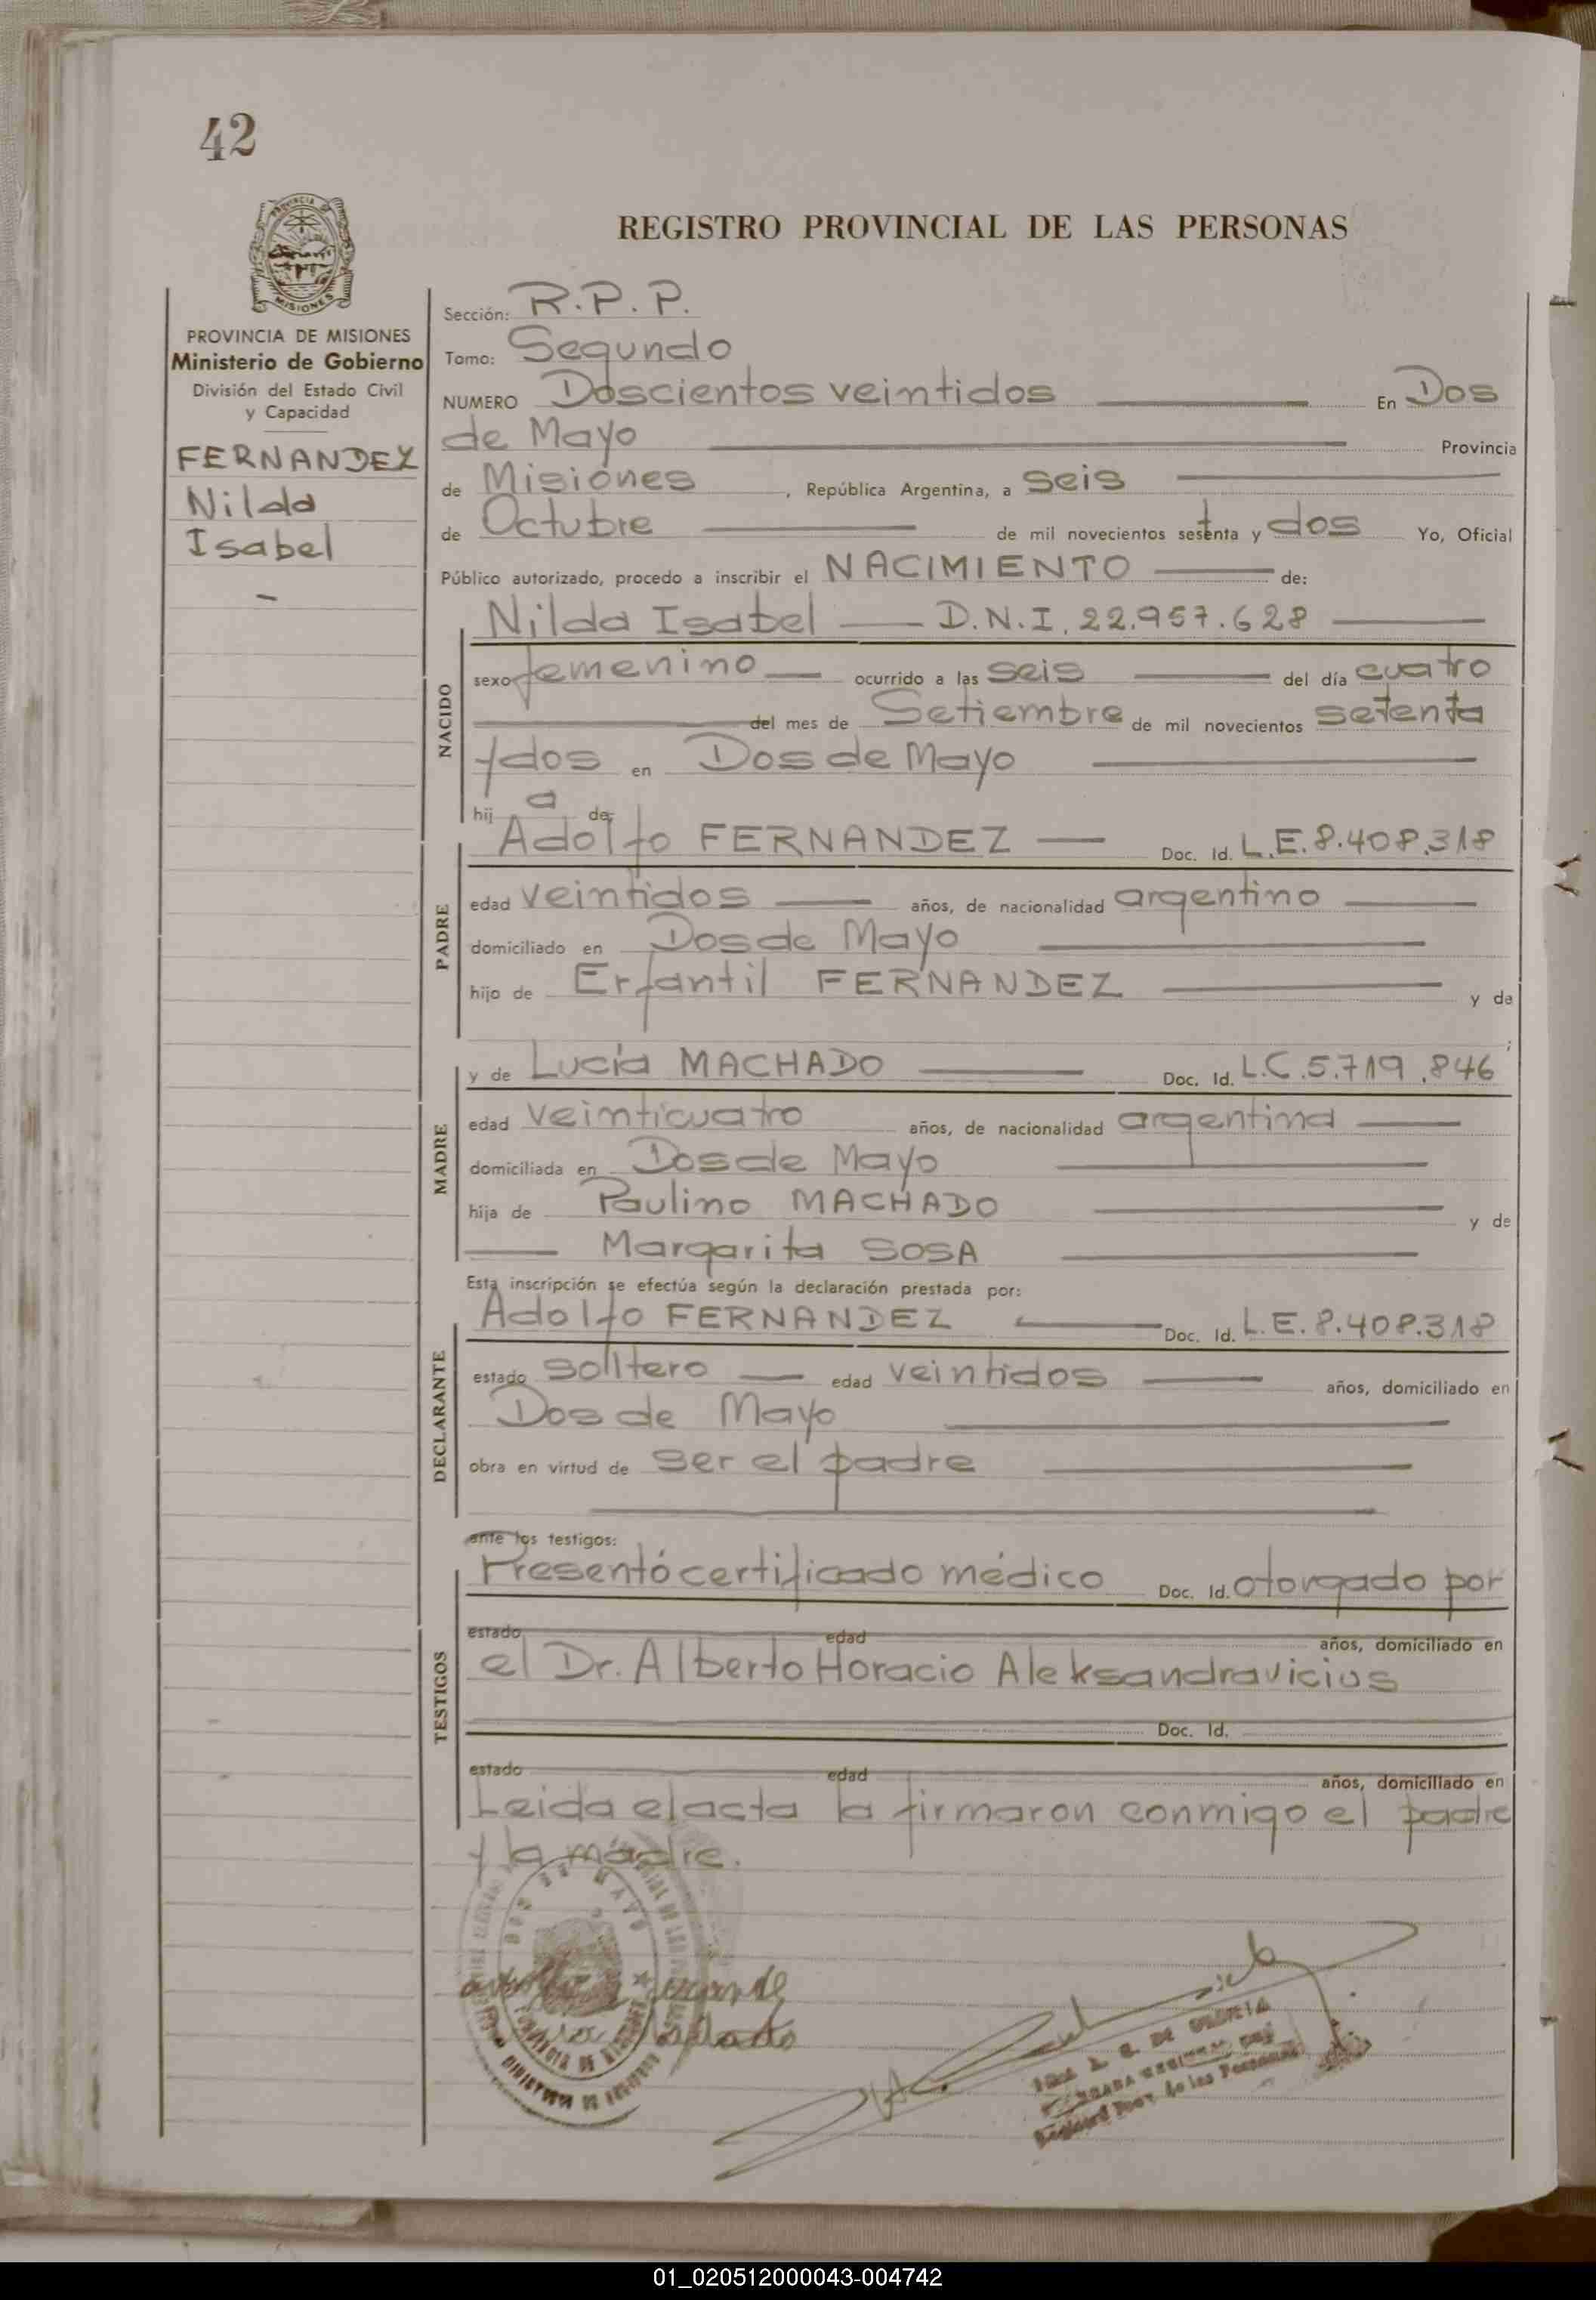 42
REGISTRO PROVINCIAL DE LAS PERSONAS
PROVINCIA DE MISIONES
Ministerio de Gobierno
División del Estado Civil
y Capacidad
FERNANDEZ
Nilda
Isabel
Sección: R.P.P.
Tomo: Segundo
NUMERO Doscientos veintidos En Dos
de Mayo Provincia
de Misiones, República Argentina, a seis
de Octubre de mil novecientos setenta y dos Yo, Oficial
Público autorizado, procedo a inscribir el NACIMIENTO de:
NACIDO
Nilda Isabel — D.N.I. 22.957.628
sexo femenino — ocurrido a las seis del día cuatro
del mes de Setiembre de mil novecientos setenta
y dos en Dos de Mayo
hij a de:
PADRE
Adolfo FERNANDEZ — Doc. Id. L.E. 8.408.318
edad veintidos años, de nacionalidad argentino
domiciliado en Dos de Mayo
hijo de Erfantil FERNANDEZ y de
MADRE
y de Lucía MACHADO Doc. Id. L.C. 5.719.846
edad veinticuatro años, de nacionalidad argentina
domiciliada en Dos de Mayo
hija de Paulino MACHADO y de
Margarita SOSA
Esta inscripción se efectúa según la declaración prestada por:
DECLARANTE
Adolfo FERNANDEZ Doc. Id. L.E. 8.408.318
estado solltero — edad veintidos años, domiciliado en
Dos de Mayo
obra en virtud de ser el padre
ante los testigos:
TESTIGOS
Presentó certificado médico Doc. Id. otorgado por
estado edad años, domiciliado en
el Dr. Alberto Horacio Aleksandravicius
Doc. Id.
estado edad años, domiciliado en
Leida el acta la firmaron conmigo el padre
y la madre.
01_020512000043-004742